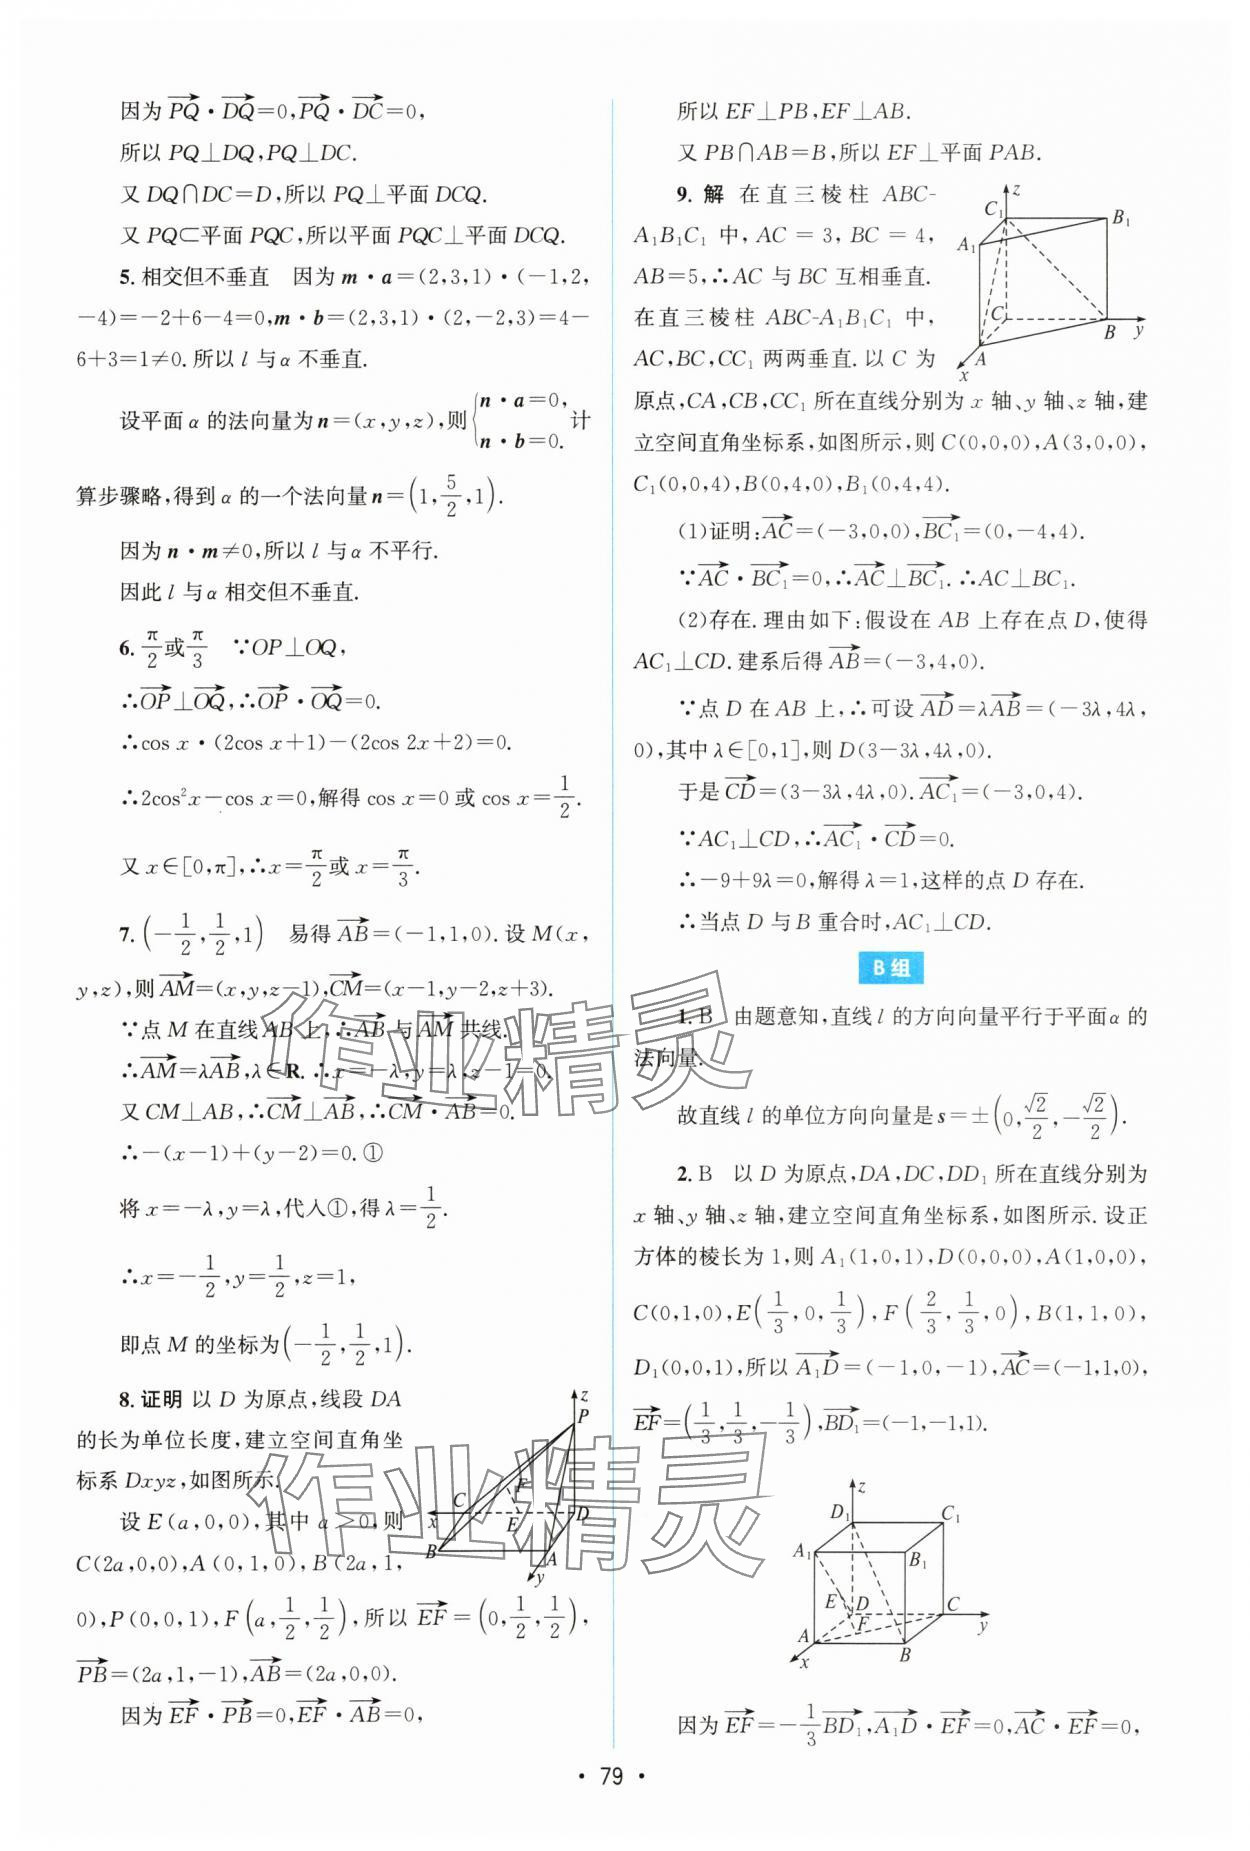 因为$\overrightarrow{PQ}$·$\overrightarrow{DQ}$=0,$\overrightarrow{PQ}$·$\overrightarrow{DC}$=0,
所以 PQ⊥DQ,PQ⊥DC.
又 DQ∩DC=D,所以 PQ⊥平面 DCQ.
又 PQ⊂平面 PQC,所以平面 PQC⊥平面 DCQ.
5. 相交但不垂直 因为 m·a=(2,3,1)·(-1,2,
-4)=-2+6-4=0,m·b=(2,3,1)·(2,-2,3)=4-
6+3=1≠0.所以 l 与 α 不垂直.
设平面 α 的法向量为 n=(x,y,z),则$\begin{cases}n·a=0,\\n·b=0.\end{cases}$计
算步骤略,得到 α 的一个法向量 n=$\left(1,\frac{5}{2},1\right)$.
因为 n·m≠0,所以 l 与 α 不平行.
因此 l 与 α 相交但不垂直.
6. $\frac{π}{2}$或$\frac{π}{3}$ ∵OP⊥OQ,
∴$\overrightarrow{OP}$⊥$\overrightarrow{OQ}$,∴$\overrightarrow{OP}$·$\overrightarrow{OQ}$=0.
∴cos x·(2cos x+1)-(2cos 2x+2)=0.
∴2cos²x-cos x=0,解得 cos x=0 或 cos x=$\frac{1}{2}$.
又 x∈[0,π],∴x=$\frac{π}{2}$或 x=$\frac{π}{3}$.
7. $\left(-\frac{1}{2},\frac{1}{2},1\right)$ 易得 $\overrightarrow{AB}$=(-1,1,0).设 M(x,
y,z),则 $\overrightarrow{AM}$=(x,y,z-1),$\overrightarrow{CM}$=(x-1,y-2,z+3).
∵点 M 在直线 AB 上,∴$\overrightarrow{AB}$ 与 $\overrightarrow{AM}$ 共线.
∴$\overrightarrow{AM}$=λ$\overrightarrow{AB}$,λ∈R.∴x=-λ,y=λ,z-1=0.
又 CM⊥AB,∴$\overrightarrow{CM}$⊥$\overrightarrow{AB}$,∴$\overrightarrow{CM}$·$\overrightarrow{AB}$=0.
∴-(x-1)+(y-2)=0.①
将 x=-λ,y=λ,代入①,得 λ=$\frac{1}{2}$.
∴x=-$\frac{1}{2}$,y=$\frac{1}{2}$,z=1,
即点 M 的坐标为$\left(-\frac{1}{2},\frac{1}{2},1\right)$.
8. 证明 以 D 为原点,线段 DA
的长为单位长度,建立空间直角坐
标系 Dxyz,如图所示.
设 E(a,0,0),其中 a>0,则
C(2a,0,0),A(0,1,0),B(2a,1,
0),P(0,0,1),F$\left(a,\frac{1}{2},\frac{1}{2}\right)$,所以 $\overrightarrow{EF}$=$\left(0,\frac{1}{2},\frac{1}{2}\right)$,
$\overrightarrow{PB}$=(2a,1,-1),$\overrightarrow{AB}$=(2a,0,0).
因为 $\overrightarrow{EF}$·$\overrightarrow{PB}$=0,$\overrightarrow{EF}$·$\overrightarrow{AB}$=0,
z
P
F
C
D
x
E
B
A
y
所以 EF⊥PB,EF⊥AB.
又 PB∩AB=B,所以 EF⊥平面 PAB.
9. 解 在直三棱柱 ABC-
A₁B₁C₁ 中,AC=3,BC=4,
AB=5,∴AC 与 BC 互相垂直.
在直三棱柱 ABC-A₁B₁C₁ 中,
AC,BC,CC₁ 两两垂直.以 C 为
原点,CA,CB,CC₁ 所在直线分别为 x 轴、y 轴、z 轴,建
立空间直角坐标系,如图所示,则 C(0,0,0),A(3,0,0),
C₁(0,0,4),B(0,4,0),B₁(0,4,4).
z
C₁
B₁
A₁
C
B
y
A
x
(1)证明:$\overrightarrow{AC}$=(-3,0,0),$\overrightarrow{BC_1}$=(0,-4,4).
∵$\overrightarrow{AC}$·$\overrightarrow{BC_1}$=0,∴$\overrightarrow{AC}$⊥$\overrightarrow{BC_1}$.∴AC⊥BC₁.
(2)存在.理由如下:假设在 AB 上存在点 D,使得
AC₁⊥CD.建系后得 $\overrightarrow{AB}$=(-3,4,0).
∵点 D 在 AB 上,∴可设 $\overrightarrow{AD}$=λ$\overrightarrow{AB}$=(-3λ,4λ,
0),其中 λ∈[0,1],则 D(3-3λ,4λ,0).
于是 $\overrightarrow{CD}$=(3-3λ,4λ,0).$\overrightarrow{AC_1}$=(-3,0,4).
∵AC₁⊥CD,∴$\overrightarrow{AC_1}$·$\overrightarrow{CD}$=0.
∴-9+9λ=0,解得 λ=1,这样的点 D 存在.
∴当点 D 与 B 重合时,AC₁⊥CD.
B 组
1. B 由题意知,直线 l 的方向向量平行于平面 α 的
法向量.
故直线 l 的单位方向向量是 s=±$\left(0,\frac{\sqrt{2}}{2},-\frac{\sqrt{2}}{2}\right)$.
2. B 以 D 为原点,DA,DC,DD₁ 所在直线分别为
x 轴、y 轴、z 轴,建立空间直角坐标系,如图所示.设正
方体的棱长为 1,则 A₁(1,0,1),D(0,0,0),A(1,0,0),
C(0,1,0),E$\left(\frac{1}{3},0,\frac{1}{3}\right)$,F$\left(\frac{2}{3},\frac{1}{3},0\right)$,B(1,1,0),
D₁(0,0,1),所以 $\overrightarrow{A_1D}$=(-1,0,-1),$\overrightarrow{AC}$=(-1,1,0),
$\overrightarrow{EF}$=$\left(\frac{1}{3},\frac{1}{3},-\frac{1}{3}\right)$,$\overrightarrow{BD_1}$=(-1,-1,1).
z
D₁
C₁
A₁
B₁
E
D
C
F
y
A
B
x
因为 $\overrightarrow{EF}$=-$\frac{1}{3}\overrightarrow{BD_1}$,$\overrightarrow{A_1D}$·$\overrightarrow{EF}$=0,$\overrightarrow{AC}$·$\overrightarrow{EF}$=0,
作业精灵
作业精灵
·79·